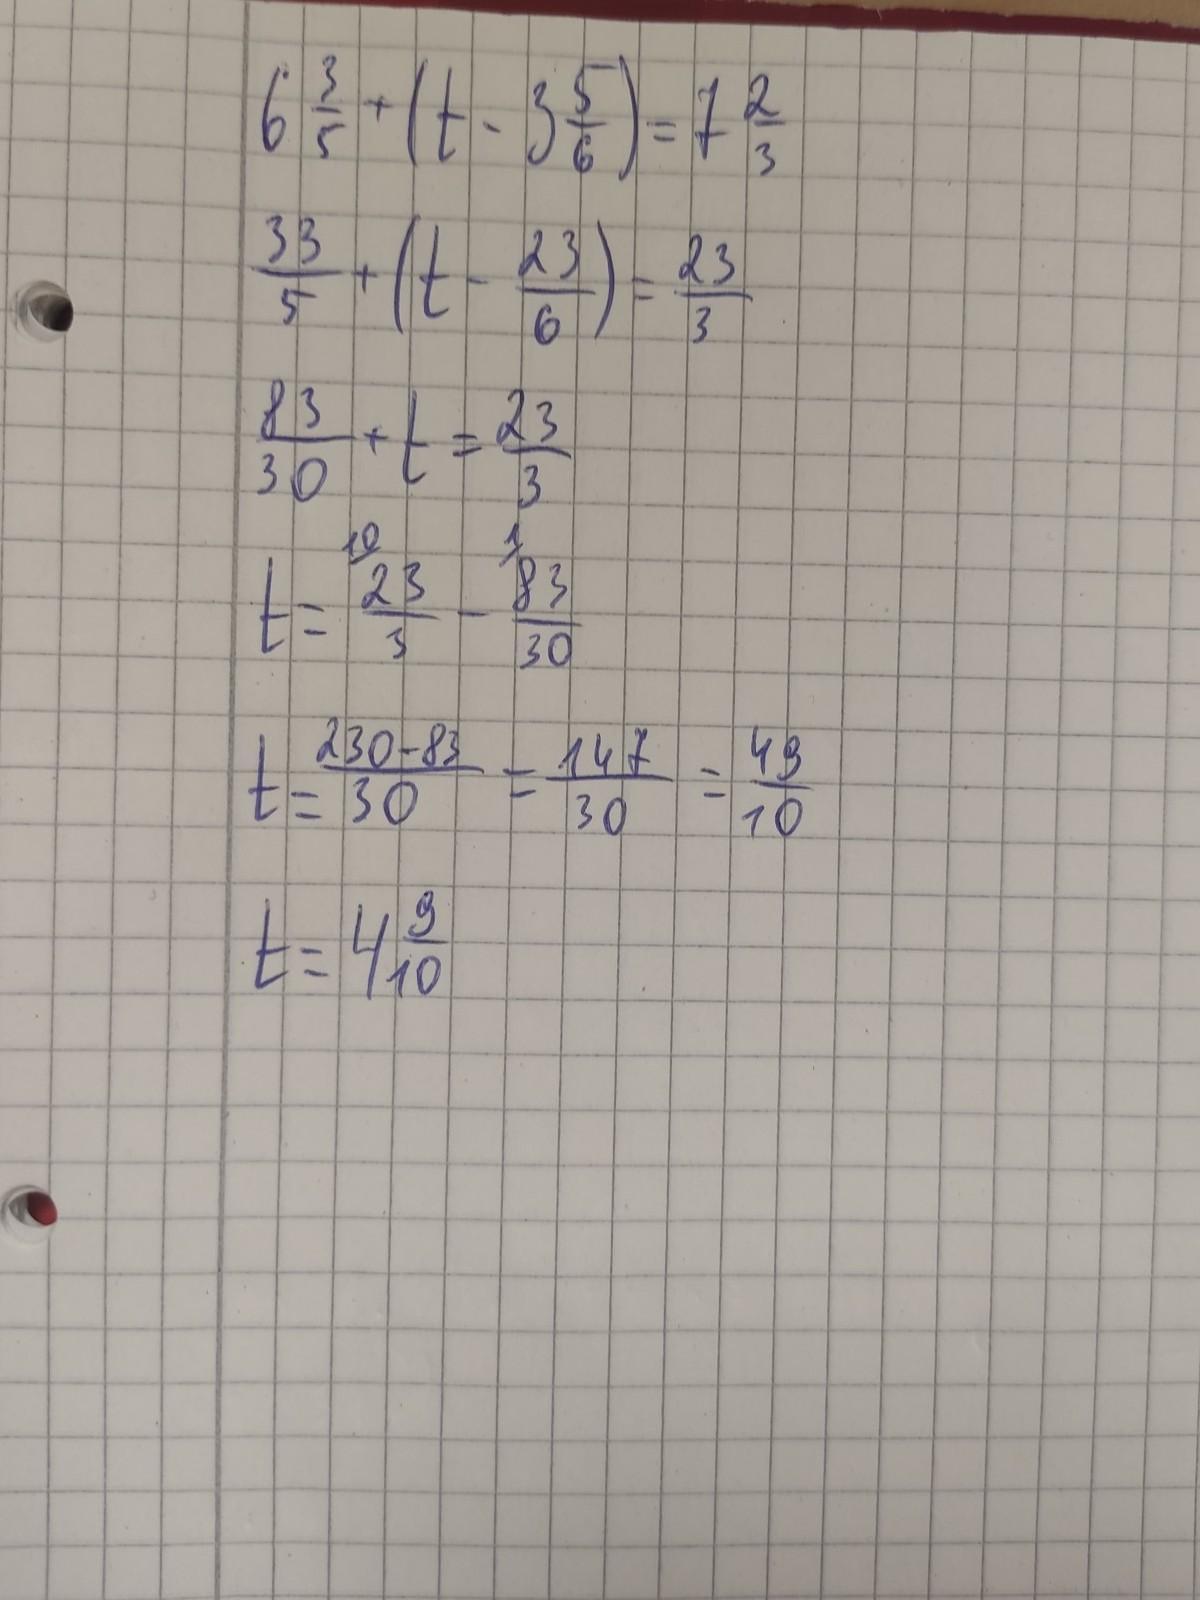 6 3/5 + (t - 3 5/6) = 7 2/3
33/5 + (t - 23/6) = 23/3
83/30 + t = 23/3
t = 10/ 23/3 - 1/ 83/30
t = 230-83/30 = 147/30 = 49/10
t = 4 9/10